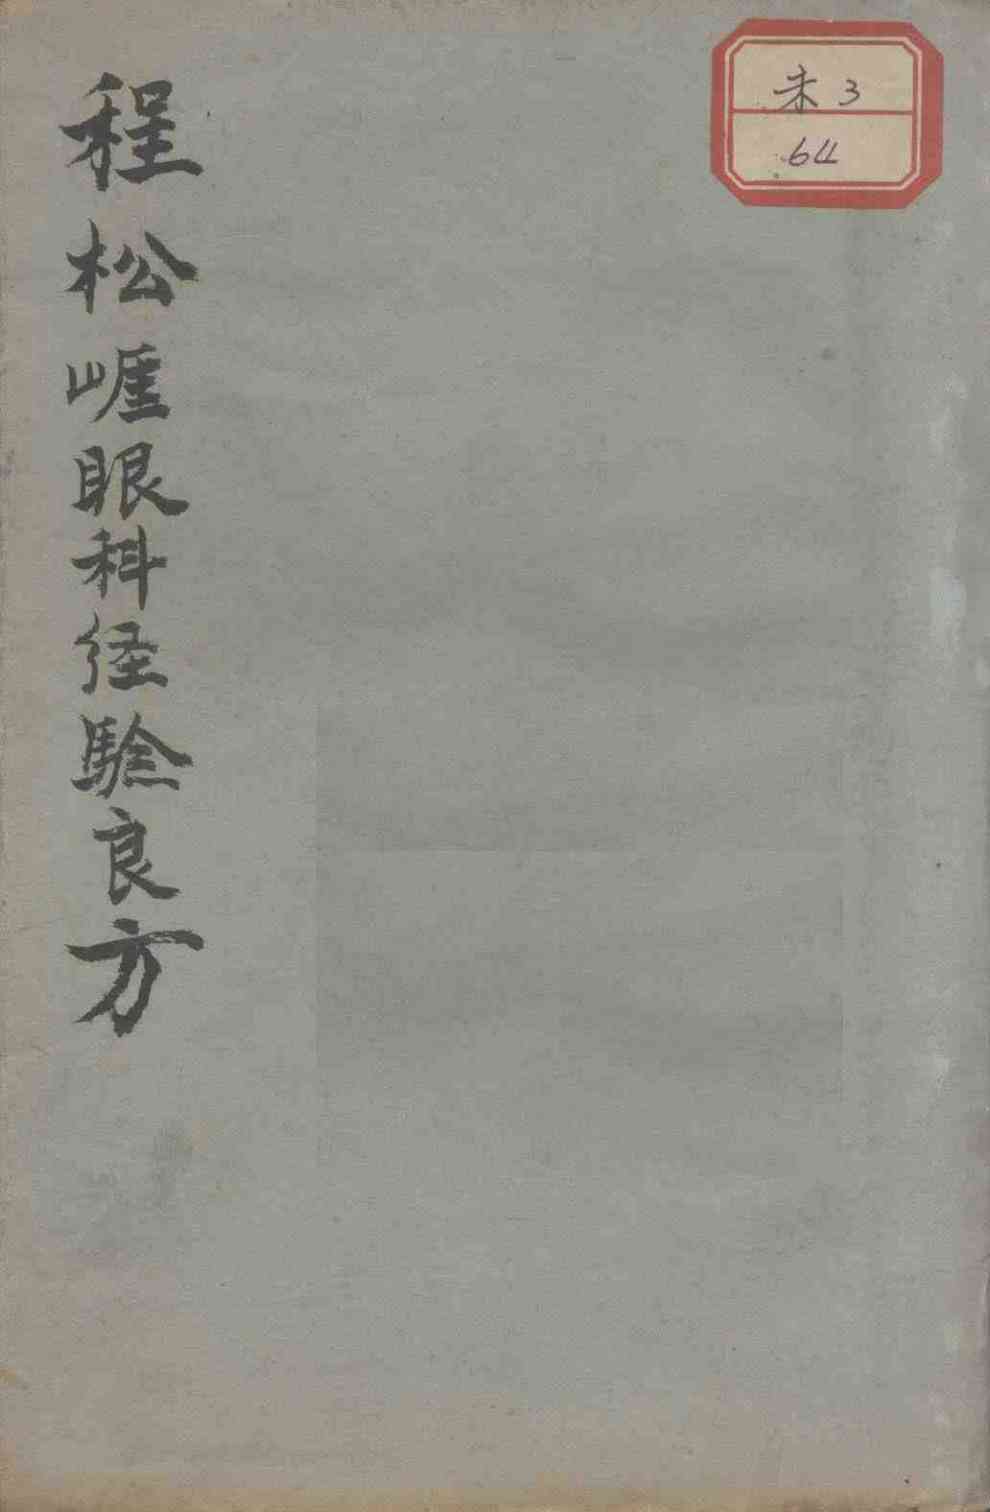 程松崕眼科経驗良方
未3
64